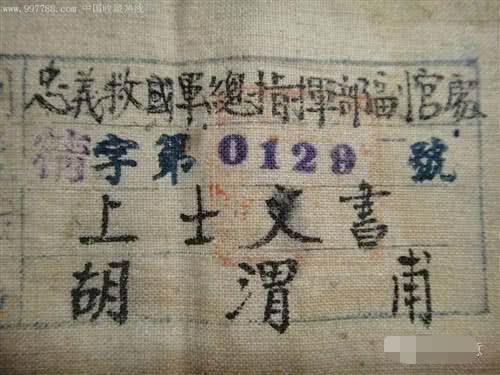 www.997788.com 中国收藏热线
忠義救國軍總指揮部副官處
字第0129號
上士文書
胡渭甫